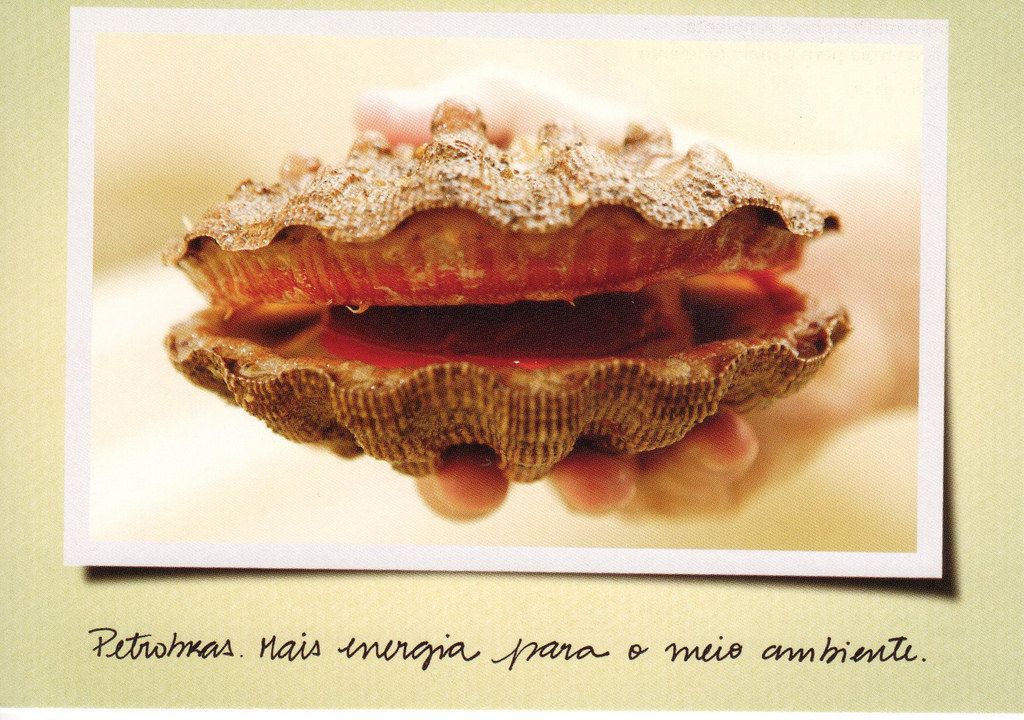 Petrobras. Mais energia para o meio ambiente.